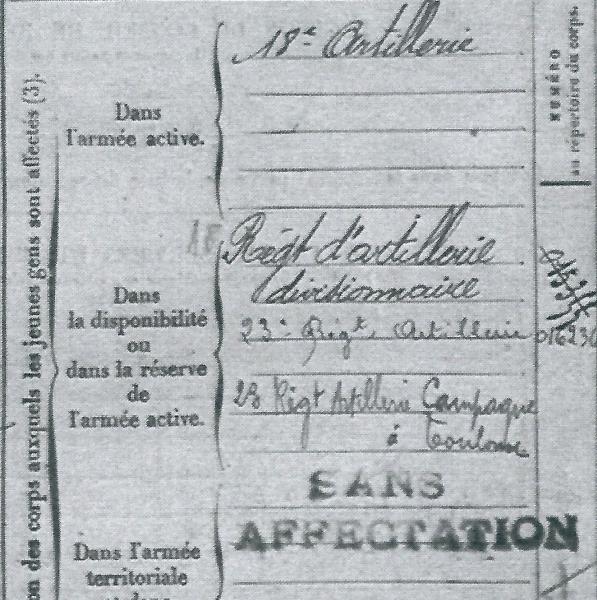 on des corps auxquels les jeunes gens sont affectés (3).
Dans
l'armée active.
18e Artillerie
NUMÉRO
au répertoire du corps.
Dans
la disponibilité
ou
dans la réserve
de
l'armée active.
18
Régt d'artillerie
divisionnaire
23e Régt Artillerie
Régt Artillerie Campagne
à Toulouse
SANS
AFFECTATION
Dans l'armée
territoriale